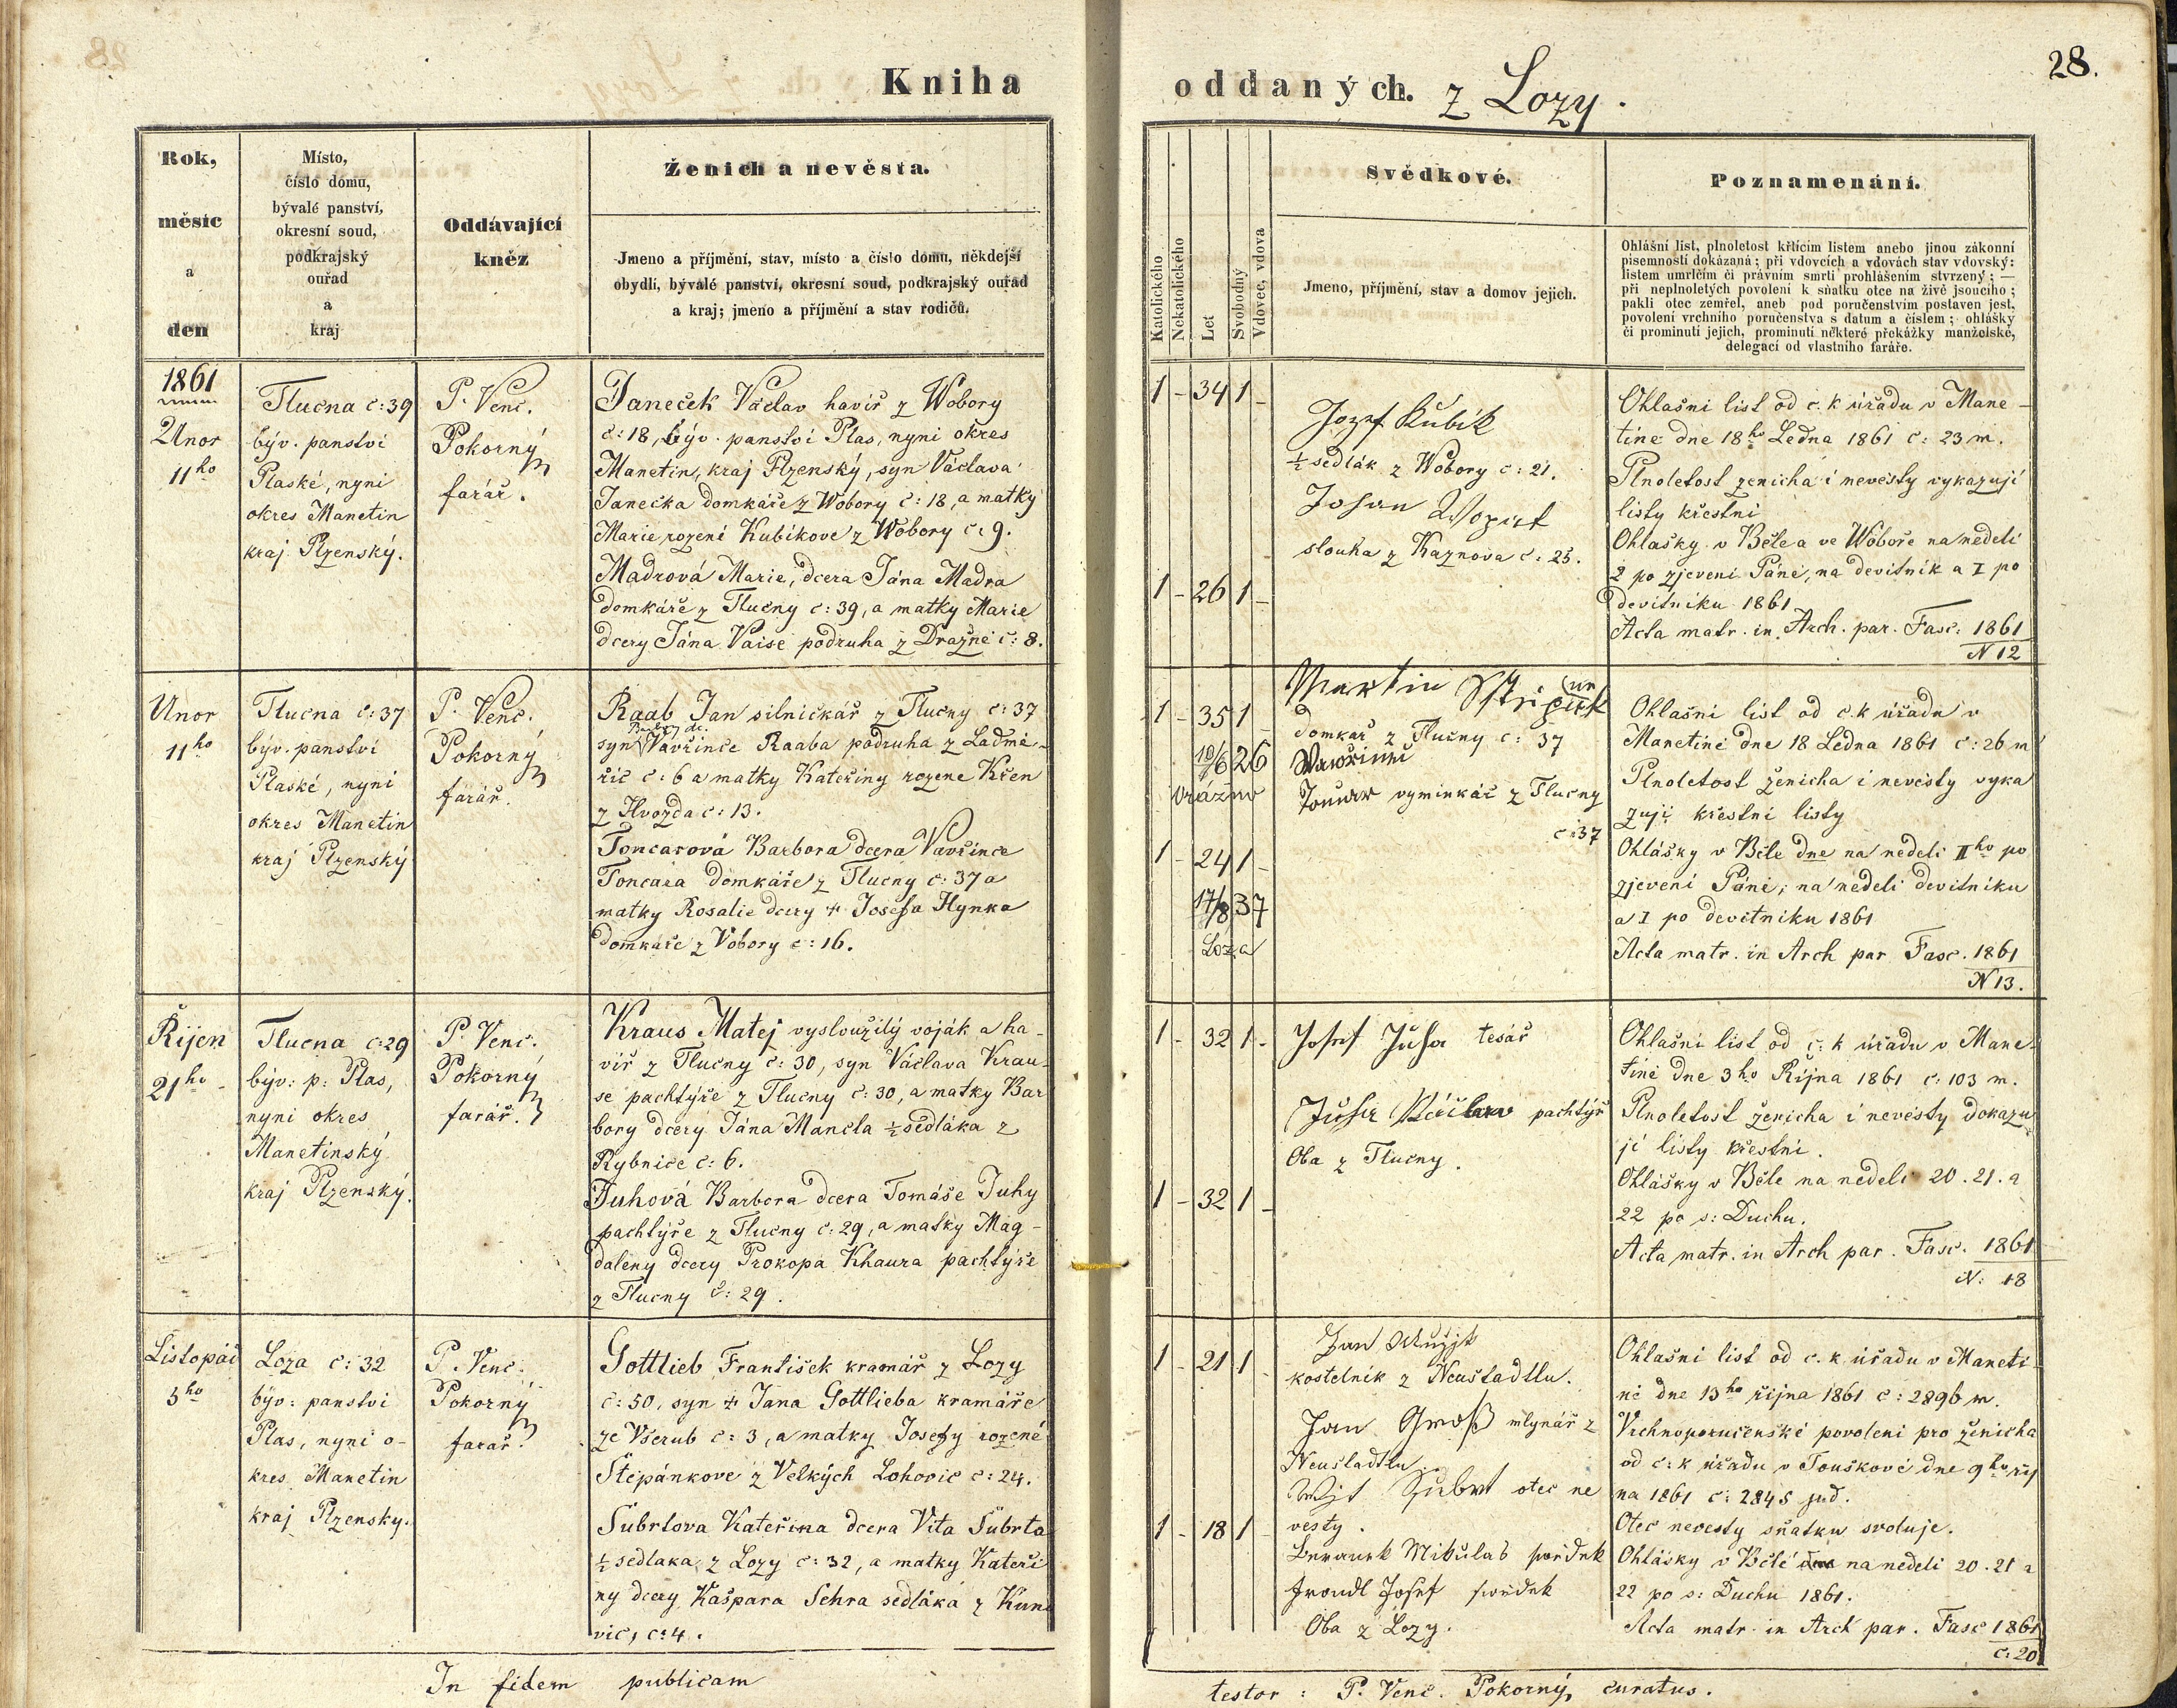 Kniha
oddaných. z Lozy.
28.
Rok,
měsíc
a
den
Místo,
číslo domu,
bývalé panství,
okresní soud,
podkrajský
ouřad
a
kraj
Oddávající
kněz
Ženich a nevěsta.
Jmeno a příjmění, stav, místo a číslo domu, někdejší
obydlí, bývalé panství, okresní soud, podkrajský ouřad
a kraj; jmeno a příjmění a stav rodičů.
Katolického
Nekatolického
Let
Svobodný
Vdovec, vdova
Svědkové.
Jmeno, příjmění, stav a domov jejich.
Poznamenání.
Ohlášní list, plnoletost křticím listem anebo jinou zákonní
písemností dokázaná; při vdovcích a vdovách stav vdovský:
listem umrlčím či právním smrti prohlášením stvrzený; —
při neplnoletých povolení k sňatku otce na živě jsoucího;
pakli otec zemřel, aneb pod poručenstvím postaven jest,
povolení vrchního poručenstva s datum a číslem; ohlášky
či prominutí jejich, prominutí některé překážky manželské,
delegací od vlastního faráře.
1861
Unor
11ho
Tlučna č: 39
býv. panstvi
Plaské, nyni
okres Manetin
kraj Plzenský.
P. Venc.
Pokorný
farář.
Janeček Václav havíř z Wobory
č: 18, býv. panstvi Plas, nyni okres
Manetin, kraj Plzenský, syn Václava
Janečka domkáře z Wobory č: 18, a matky
Marie rozeni Kubíkove z Wobory č: 9.
Madrová Marie, dcera Jána Madra
domkáře z Tlučny č: 39, a matky Marie
dcery Jána Vaise podruha z Dražně č: 8.
1 - 34 1 -
1 - 26 1 -
Jozef Kubik
½ sedlák z Wobory č: 21.
Johan Wopat
slouha z Kaznova č: 25.
Ohlašni list od c. k úřadu v Mane-
tině dne 18ho Ledna 1861 č: 23 m.
Plnoletost ženicha i nevěsty vykazuji
listy křestni
Ohlašky v Běle a ve Wóboře na neděli
2 po zjeveni Páně, na devitnik a I po
devitniku 1861
Acta matr. in. Arch. par. Fasc. 1861
N 12
Unor
11ho
Tlučna č: 37
býv. panstvi
Plaské, nyni
okres Manetin
kraj Plzenský
P. Venc.
Pokorný
farář.
Raab Jan silničkář z Tlučny č: 37
syn Vavřince Raaba podruha z Ladmě-
řic č: 6 a matky Kateřiny rozene Křen
z Hvozda č: 13.
Toncarová Barbora dcera Vavřince
Toncara domkáře z Tlučny č: 37 a
matky Rosalie dcery + Josefa Hynka
domkáře z Vobory č: 16.
1 - 35 1 -
10/6 26
Vrážno
1 - 24 1 -
17/8 37
Loza
Martin
domkař z Tlučny č: 37
Wawřinec
Toncar vyminkář z Tlučny
č: 37
Ohlašni list od c. k úřadu v
Manetině dne 18 Ledna 1861 č: 26 m
Plnoletost ženicha i nevěsty vyka
zuji křestni listy
Ohlášky v Běle dne na neděli IIho po
zjeveni Páně, na neděli devitniku
a I po devitniku 1861
Acta matr. in Arch par Fasc. 1861
N 13.
Řijen
21ho
Tlucna č: 29
býv: p: Plas,
nyni okres
Manetinský
kraj Plzenský.
P. Venc.
Pokorný
farář.
Kraus Matej vysloužilý voják a ha-
viř z Tlučny č: 30, syn Václava Krau-
se pachtýře z Tlučny č: 30, a matky Bar
bory dcery Jána Mancla ½ sedláka z
Rybnice č: 6.
Juhová Barbora dcera Tomáše Juhy
pachtýře z Tlučny č: 29, a matky Mag-
daleny dcery Prokopa Khaura pachtýře
z Tlucny č: 29.
1 - 32 1 -
1 - 32 1 -
Josef Juha tesář
Juha Václav pachtýř
Oba z Tlučny.
Ohlašni list od c: k úřadu v Mane-
tině dne 3ho Řijna 1861 č: 103 m.
Plnoletost ženicha i nevěsty dokazu
ji listy křestni.
Ohlášky v Běle na neděli 20. 21. a
22 po s: Duchu.
Acta matr. in Arch par. Fasc. 1861
N: 18
Listopád
5ho
Loza č: 32
býv: panstvi
Plas, nyni o-
kres Manetin
kraj Plzensky.
P. Venc.
Pokorný
farář.
Gottlieb František kramář z Lozy
č: 50, syn + Jana Gottlieba kramáře
ze Všerub č: 3, a matky Josefy rozené
Štěpánkove z Velkých Lohovic č: 24.
Šubrtova Kateřina dcera Vita Šubrta
½ sedlaka z Lozy č: 32, a matky Kateři
ny dcery Kašpara Sehra sedláka z Kun
vic, č: 4.
1 - 21 1 -
1 - 18 1 -
Jan
kostelnik z Neustadtlu.
Jan Groß mlynář z
Neustadtlu
Wjt Šubrt otec ne
vesty.
Beranek Mikulaš swědek
Josef swědek
Oba z Lozy.
Ohlašni list od c. k úřadu v Maneti-
ně dne 13ho řijna 1861 č: 2896 m.
Vrchnoporučenské povoleni pro ženicha
od c: k úřadu v Touškově dne 9ho řij
na 1861 č: 2845 jud.
Otec nevesty sňatku svoluje.
Ohlásky v Bělé dne na neděli 20. 21 a
22 po s: Duchu 1861.
Acta matr. in Arch par. Fasc 1861
č: 20
In fidem publicam
testor: P. Venc. Pokorný, curatus.